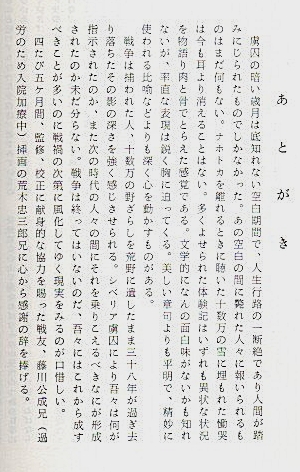 あとがき
虜囚の暗い歳月は底知れない空白期間で、人生行路の一断絶であり人間が踏
みにじられたものでしかなかった。あの空白の間に斃れた人々に報いられるも
のはまだ何もない。ナホトカを離れるときに聴いた十数万の雪に埋もれた慟哭
は今も耳より消えることはない。多くよせられた体験記はいずれも異状な状況
を物語り肉と骨でとらえた感覚である。文学的になんの面白味がないかも知れ
ないが、率直な表現は鋭く胸に迫ってくる。美しい章句よりも平明で、精妙に
使われる比喩などよりも深く心を動かすものがある。
戦争は捕われた人、十数万の野ざらしを荒野に遺したまま三十八年が過ぎ去
り落ちたその影の深さを強く感じさせられる。シベリア虜囚により吾々は何が
指示されたのか、また次の時代の人々の間にそれを乗りこえるべきなにが形成
されたのか未だ分らない。戦争は終ってはいないのだ、吾々にはこれから成す
べきことが多いのに戦禍の次第に風化してゆく現実をみるのが口惜しい。
四たび五ケ月間、監修、校正に献身的な協力を賜った戦友、藤川公成兄（過
労のため入院加療中）挿画の荒木忠三郎兄に心から感謝の辞を捧げる。